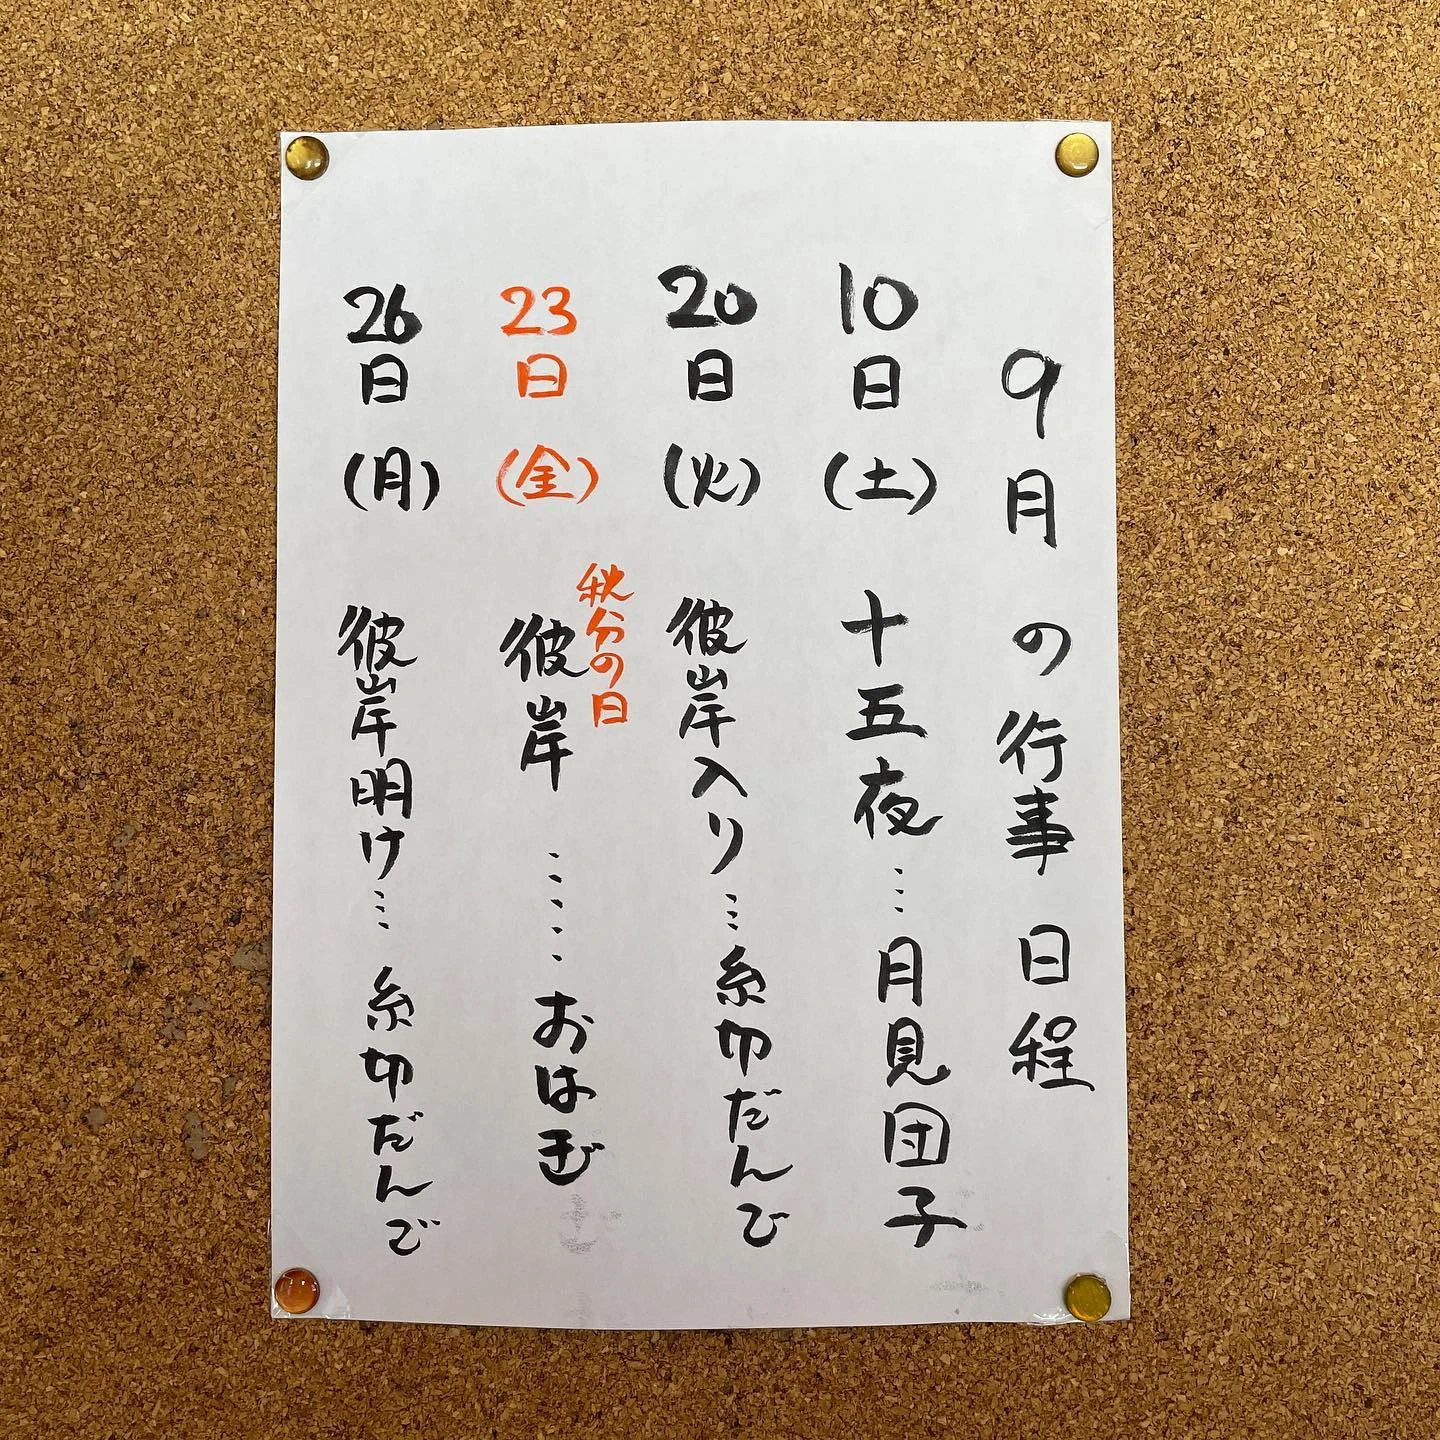 9月の行事日程
10日(土) 十五夜…月見団子
20日(火) 彼岸入り…糸切だんご
23日(金) 秋分の日
彼岸……おはぎ
26日(月) 彼岸明け…糸切だんご